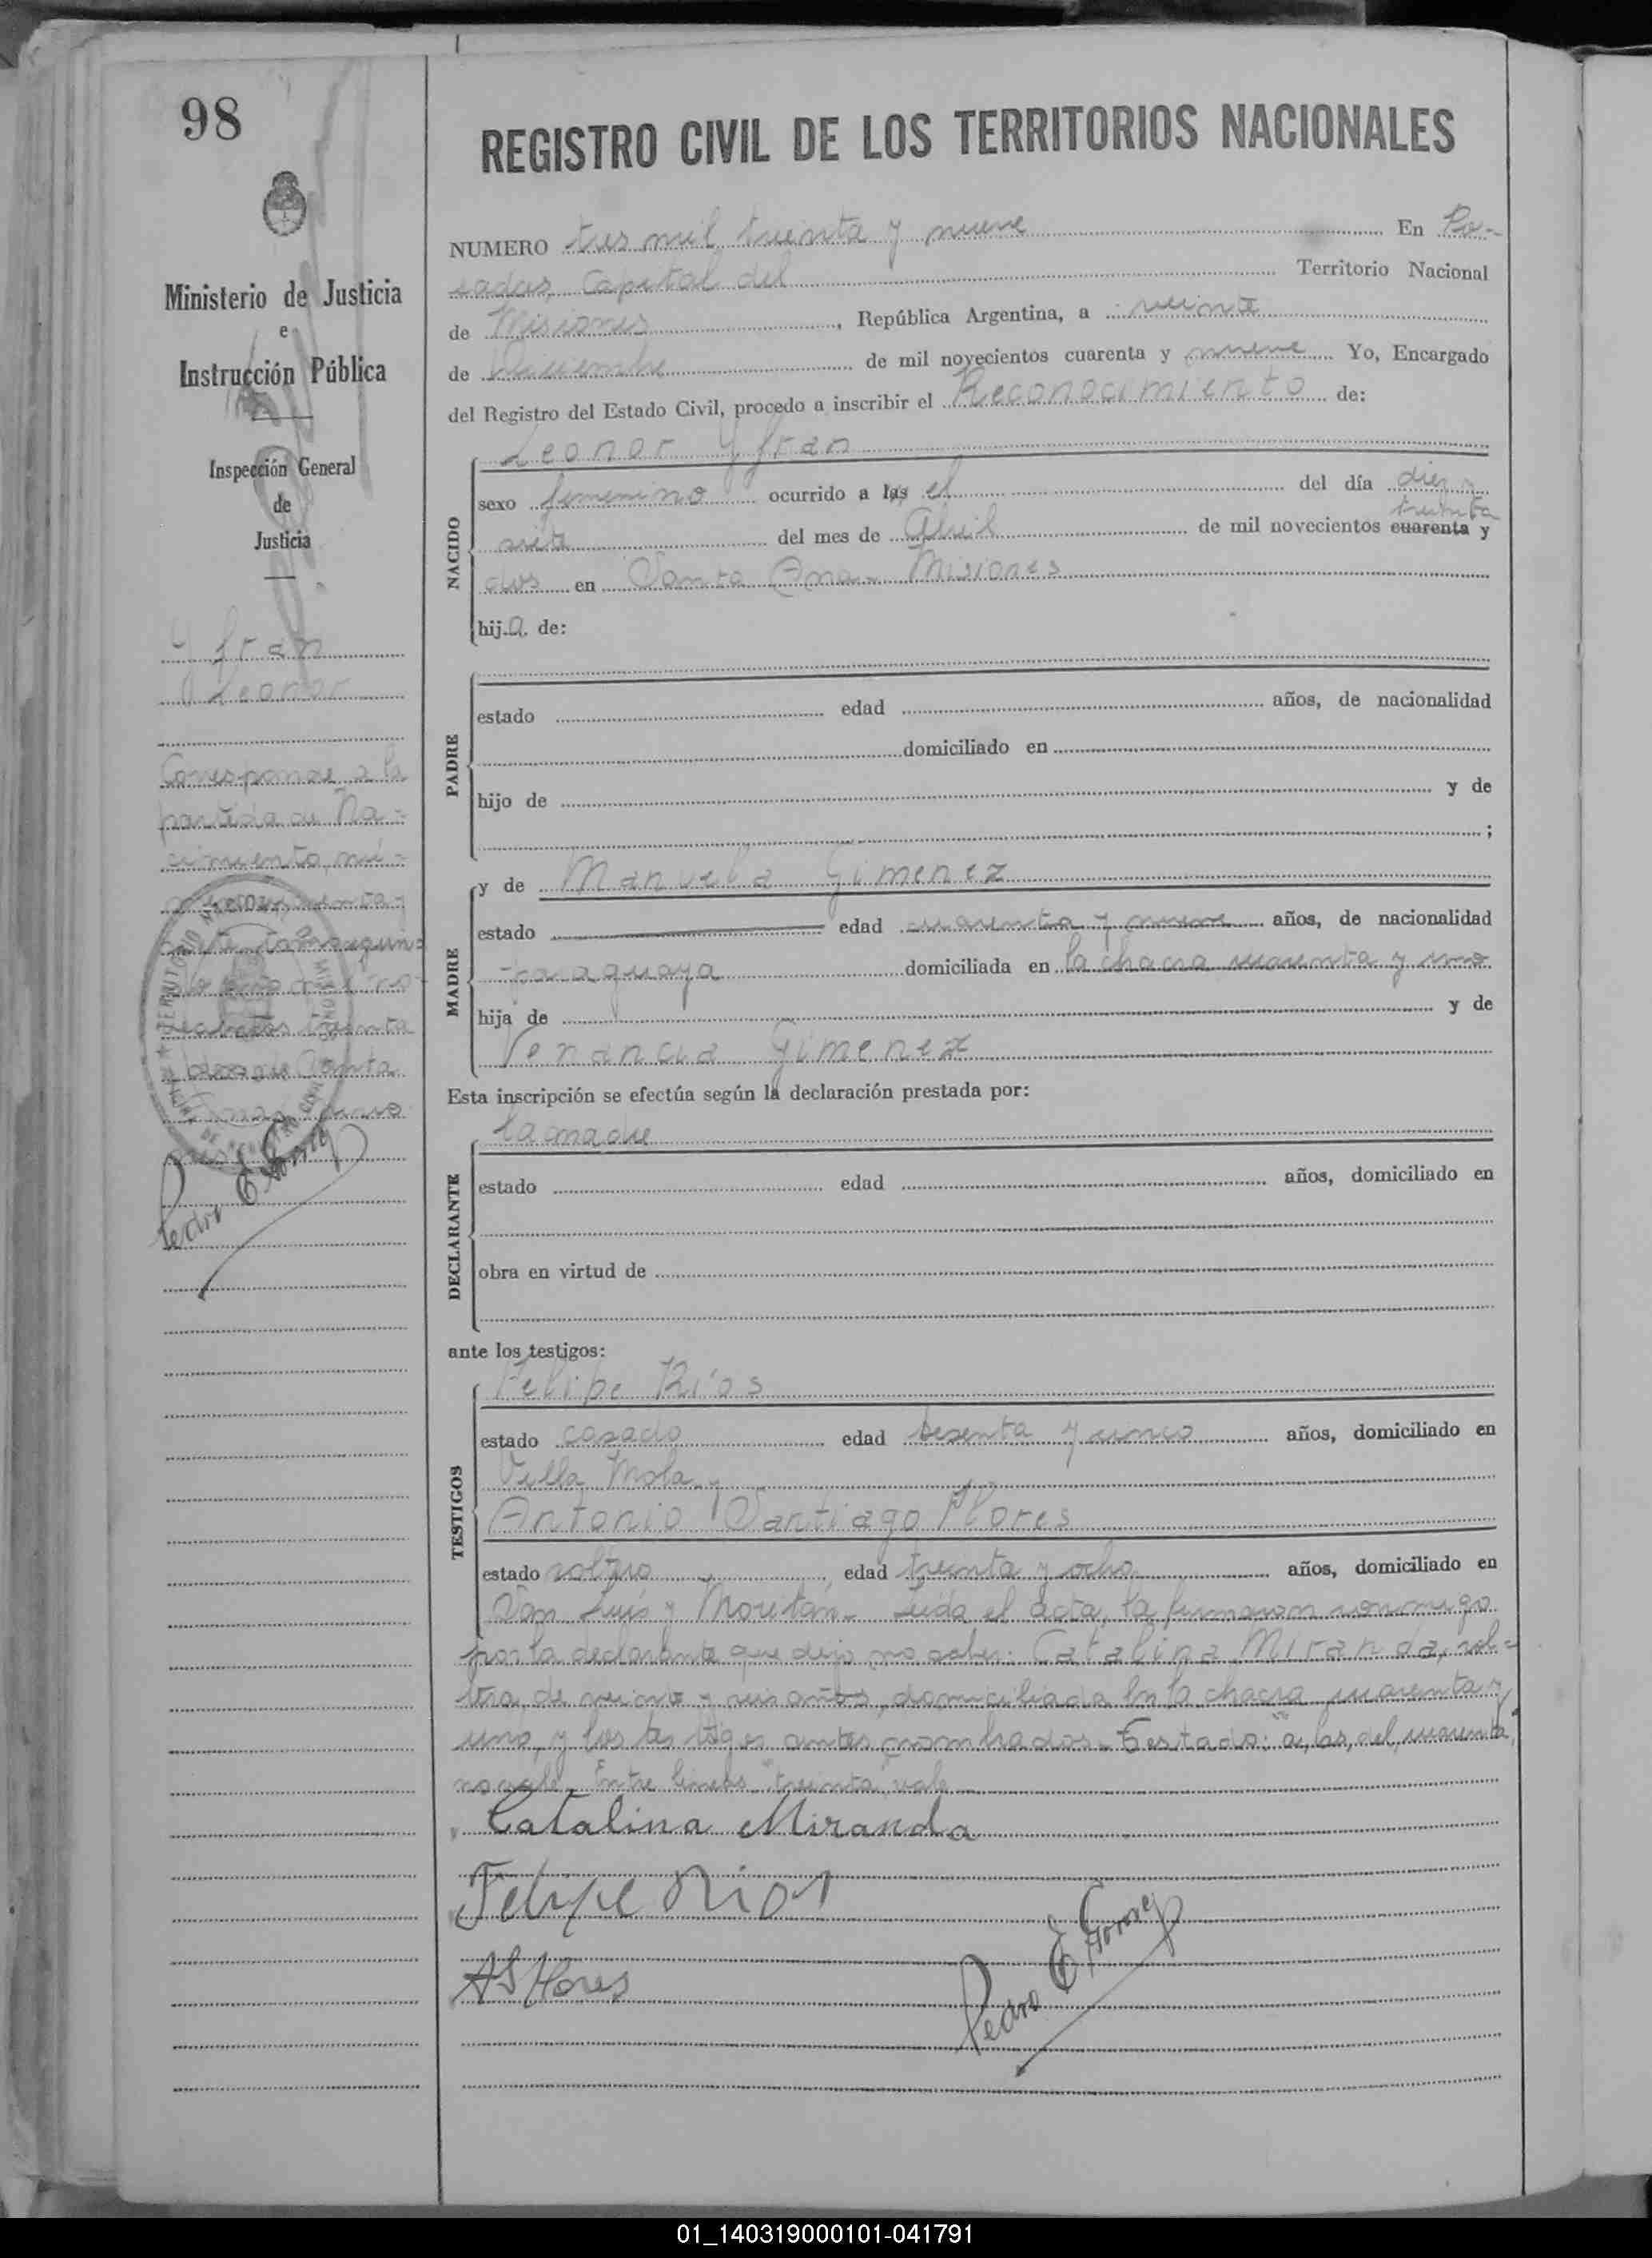 98
REGISTRO CIVIL DE LOS TERRITORIOS NACIONALES
Ministerio de Justicia
e
Instrucción Pública
Inspección General
de
Justicia
Yfrán
Leonor
Corresponde a la
partida de Na-
cimiento, nú-
NUMERO tres mil treinta y nueve En Po-
sadas, Capital del Territorio Nacional
de Misiones, República Argentina, a veinte
de Diciembre de mil novecientos cuarenta y nueve Yo, Encargado
del Registro del Estado Civil, procedo a inscribir el Reconocimiento de:
NACIDO
Leonor Yfran
sexo femenino ocurrido a las el del día diez y
treinta
siete del mes de Abril de mil novecientos cuarenta y
dos en Santa Ana - Misiones
hija de:
PADRE
estado edad años, de nacionalidad
domiciliado en
hijo de y de
;
MADRE
y de Manuela Gimenez
estado edad cuarenta y nueve años, de nacionalidad
paraguaya domiciliada en la chacra cuarenta y uno
hija de y de
Venancia Gimenez
Esta inscripción se efectúa según la declaración prestada por:
DECLARANTE
la madre
estado edad años, domiciliado en
obra en virtud de
ante los testigos:
TESTIGOS
Felipe Ríos
estado casado edad sesenta y cinco años, domiciliado en
Villa Mola y
Antonio Santiago Flores
estado soltero edad treinta y ocho años, domiciliado en
San Luis y Moritán - Leida el acta, la firmaron conmigo
por la declarante que dijo no saber: Catalina Miranda, sol-
tera, de veinte y seis años, domiciliada en la chacra cuarenta y
uno, y los testigos antes nombrados - Testado: "a, las, del, cuarenta"
no vale. Entre lineas "treinta" vale
Catalina Miranda
Felipe Rios
AS Flores
Pedro E Gomez
Pedro E Gomez
01_140319000101-041791